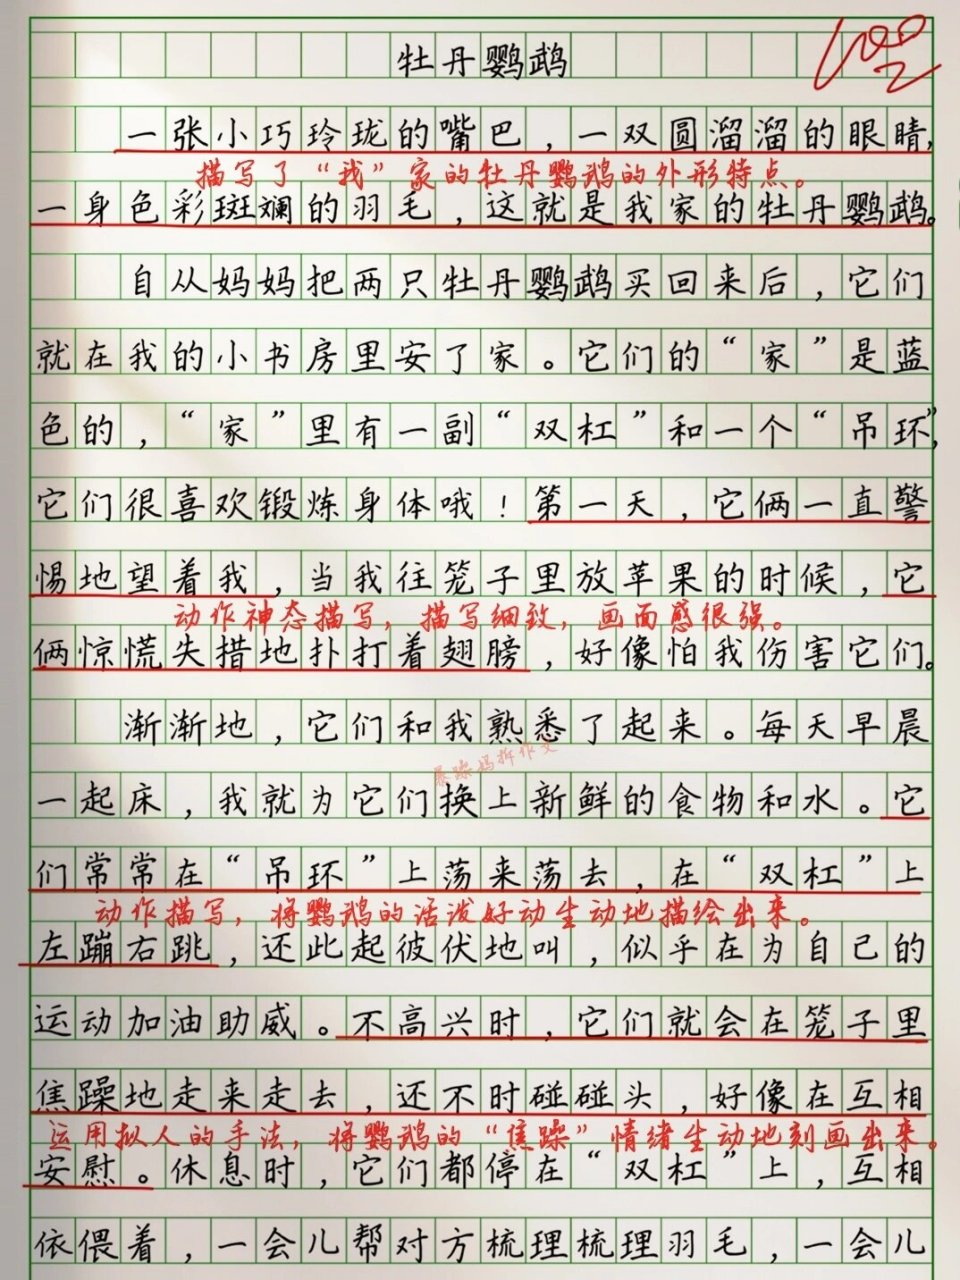 牡丹鹦鹉
100
一张小巧玲珑的嘴巴，一双圆溜溜的眼睛，
描写了“我”家的牡丹鹦鹉的外形特点。
一身色彩斑斓的羽毛，这就是我家的牡丹鹦鹉。
自从妈妈把两只牡丹鹦鹉买回来后，它们
就在我的小书房里安了家。它们的“家”是蓝
色的，“家”里有一副“双杠”和一个“吊环”，
它们很喜欢锻炼身体哦！第一天，它俩一直警
惕地望着我，当我往笼子里放苹果的时候，它
动作神态描写，描写细致，画面感很强。
俩惊慌失措地扑打着翅膀，好像怕我伤害它们。
渐渐地，它们和我熟悉了起来。每天早晨
暴躁妈拆作文
一起床，我就为它们换上新鲜的食物和水。它
们常常在“吊环”上荡来荡去，在“双杠”上
动作描写，将鹦鹉的活泼好动生动地描绘出来。
左蹦右跳，还此起彼伏地叫，似乎在为自己的
运动加油助威。不高兴时，它们就会在笼子里
焦躁地走来走去，还不时碰碰头，好像在互相
运用拟人的手法，将鹦鹉的“焦躁”情绪生动地刻画出来。
安慰。休息时，它们都停在“双杠”上，互相
依偎着，一会儿帮对方梳理梳理羽毛，一会儿